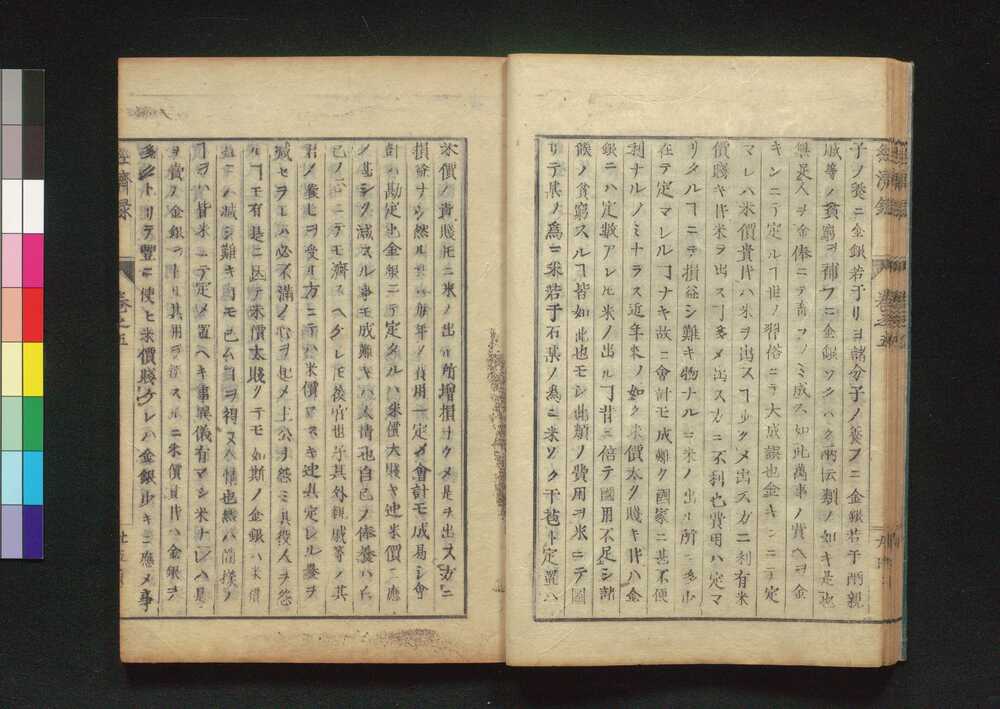 子ノ養ニ金銀若干リヨ諸分子ノ養フニ金銀若干兩親
城等ノ貧窮ヲ補フニ金銀ツシハク兩伝類ノ如キ是也
無足人ヲ金俸ニテ畜フノミ成ス如此萬事ノ費ヘヲ金
キンニテ定ルヿ世ノ習俗ニテ大成謬也金キンニテ定
マレハ米價貴片ハ米ヲ出スヿ少クメ出ス方ニ利有米
價賤キ片米ヲ出スヿ多メ出ス方ニ不利也費用ハ定マ
リタルヿニテ損益シ難キ物ナルニ米ノ出ル所ニ多少
在テ定マレルヿナキ故ニ會計モ成難ク國家ニ甚不便
利ナルノミナラス近年來ノ如ク米價太タ賤キ片ハ金
銀ニハ定數アレ𪜈米ノ出ルヿ昔ニ倍テ國用不足シ諸
候ノ貧窮スルヿ皆如此也モシ此類ノ費用ヲ米ニテ國
リテ其ノ為ニ米若干石某ノ為ニ米ツク干苞ト定置ハ
米價ノ貴賤𪜈ニ米ノ出ル所增損ナクメ是ヲ出ス方ニ
損益ナシ然ル 毎年ノ費用一定メ會計モ成易シ會
計ハ勘定也金銀ニテ定タルハ米價大賤キ迚米價ニ應
ノ甚シク減スル事モ成難キハ人情也自己ノ俸養ハ只
己ノ心ニテモ濟スヘケレ𪜈後官也子其外親戚等ノ其
君ノ養ヒヲ受ル方ニテハ米價ヤスキ迚其定レル養ヲ
減セラエハ必不滿ノ心ヲ起メ主公ヲ怨ミ其役人ヲ怨
ルヿモ有是ニ因テ米價太賤クテモ如斯ノ金銀ハ米價
ニハ減シ難キ ヿモ已ムヿヲ得ヌハ情也然ハ箇樣ノ
ヿヲハ皆米ニテ定メ置ヘキ事異儀有マシ米ナレハ是
ヲ賣ノ金銀 リ其用ヲ濟スルニ米價貴片ハ金銀ヲ
多クトリテ豐ニ使ヒ米價賤ケレハ金銀少キニ應メ事
經濟錄
卷之五